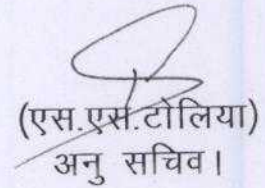 (एस.एस.टोलिया)
अनु सचिव।